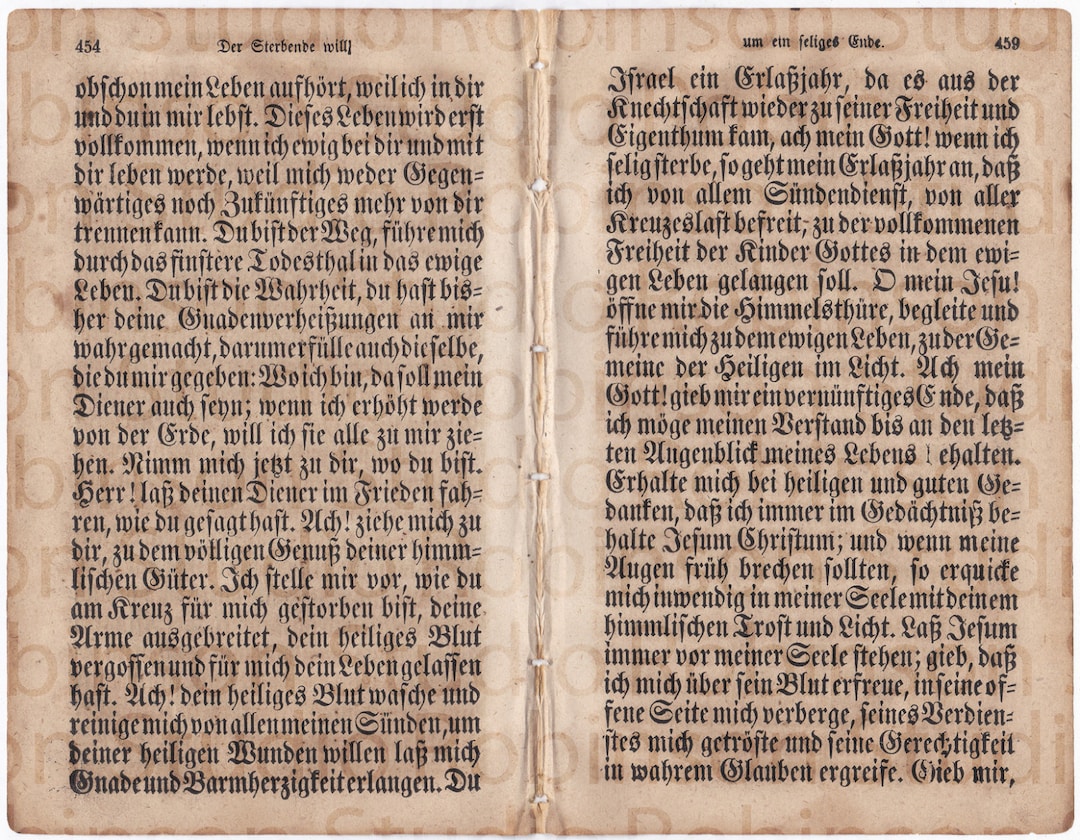 454
Der Sterbende will
obschon mein Leben aufhört, weil ich in dir
und du in mir lebst. Dieses Leben wird erst
vollkommen, wenn ich ewig bei dir und mit
dir leben werde, weil mich weder Gegen=
wärtiges noch Zukünftiges mehr von dir
trennen kann. Du bist der Weg, führe mich
durch das finstere Todesthal in das ewige
Leben. Du bist die Wahrheit, du hast bis=
her deine Gnadenverheißungen an mir
wahr gemacht, darum erfülle auch dieselbe,
die du mir gegeben: Wo ich bin, da soll mein
Diener auch seyn; wenn ich erhöht werde
von der Erde, will ich sie alle zu mir zie=
hen. Nimm mich jetzt zu dir, wo du bist.
Herr! laß deinen Diener im Frieden fah=
ren, wie du gesagt hast. Ach! ziehe mich zu
dir, zu dem völligen Genuß deiner himm=
lischen Güter. Ich stelle mir vor, wie du
am Kreuz für mich gestorben bist, deine
Arme ausgebreitet, dein heiliges Blut
vergossen und für mich dein Leben gelassen
hast. Ach! dein heiliges Blut wasche und
reinige mich von allen meinen Sünden, um
deiner heiligen Wunden willen laß mich
Gnade und Barmherzigkeit erlangen. Du
um ein seliges Ende.
459
Israel ein Erlaßjahr, da es aus der
Knechtschaft wieder zu seiner Freiheit und
Eigenthum kam, ach mein Gott! wenn ich
selig sterbe, so geht mein Erlaßjahr an, daß
ich von allem Sündendienst, von aller
Kreuzeslast befreit, zu der vollkommenen
Freiheit der Kinder Gottes in dem ewi=
gen Leben gelangen soll. O mein Jesu!
öffne mir die Himmelsthüre, begleite und
führe mich zu dem ewigen Leben, zu der Ge=
meine der Heiligen im Licht. Ach mein
Gott! gieb mir ein vernünftiges Ende, daß
ich möge meinen Verstand bis an den letz=
ten Augenblick meines Lebens ehalten.
Erhalte mich bei heiligen und guten Ge=
danken, daß ich immer im Gedächtniß be=
halte Jesum Christum; und wenn meine
Augen früh brechen sollten, so erquicke
mich inwendig in meiner Seele mit deinem
himmlischen Trost und Licht. Laß Jesum
immer vor meiner Seele stehen; gieb, daß
ich mich über sein Blut erfreue, in seine of=
fene Seite mich verberge, seines Verdien=
stes mich getröste und seine Gerechtigkeit
in wahrem Glauben ergreife. Gieb mir,